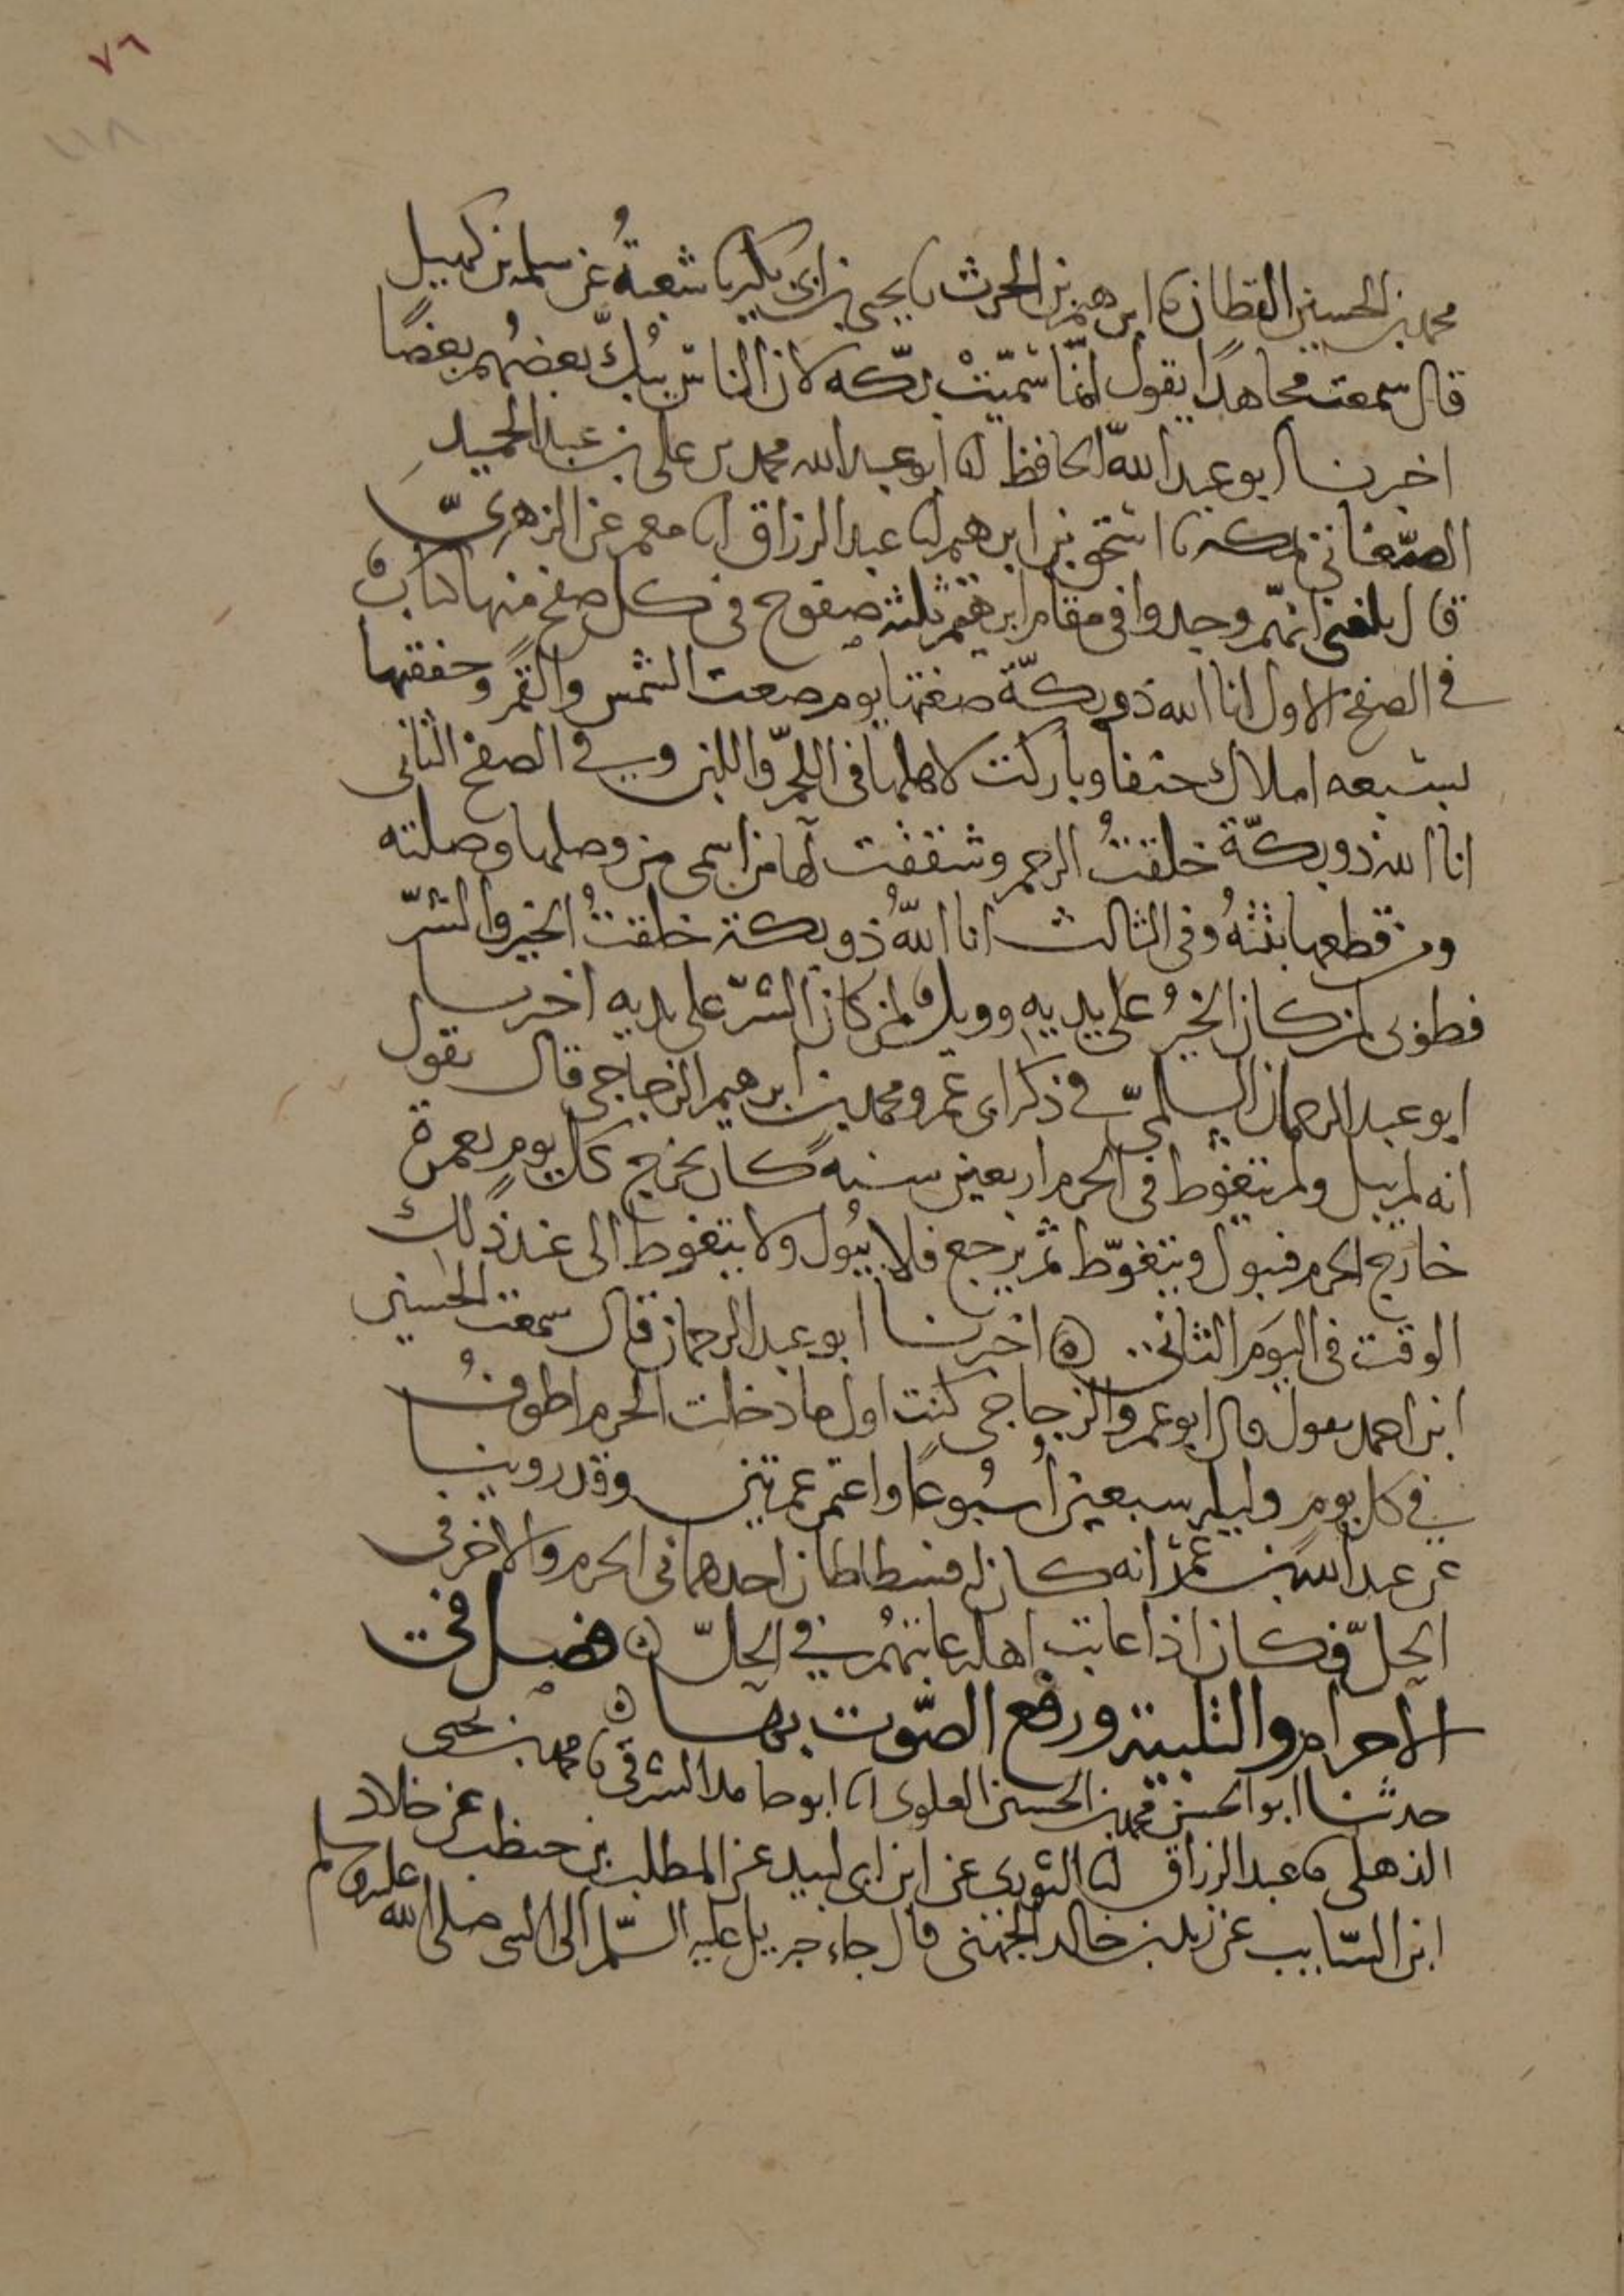 ٧٦
محمد بن الحسين القطان نا ابرهيم بن الحرث نا يحيى بن ابى بكير نا شعبةُ عن سلمة بن كهيل
قال سمعت مجاهدًا يقول انّما سُمّيتْ بكّه لان الناسَ يبُكّ بعضُهم بعضًا
اخبرنا ابو عبد الله الحافظ انا ابو عبد الله محمد بن على بن عبد الحميد
الصّنعانى بمكة نا اسحق بن ابرهيم انا عبد الرزاق انا معمر عن الزهرىّ
قال بلغنى انهّم وجدوا فى مقام ابرهيم ثلثة صفوح فى كل صفح منها كتابٌ
فى الصفح الاول انا الله ذو بكّة صغتها يوم صغت الشمس والقمر وحففتها
بسبعه املاك حنفا وباركت لاهلها فى اللحم واللبن وفى الصفح الثانى
انا الله ذو بكّة خلقتُ الرحم وشققت لها من اسمى من وصلها وصلته
ومن قطعها بتتُّهُ وفى الثالث انا اللّهُ ذو بكة خلقتُ الخير والشرّ
فطوبى لمن كان الخيرُ على يديهِ وويلٌ لمن كان الشرّ على يديه اخبرنا
ابو عبد الرحمان السلمىّ فى ذكر ابى عمرو محمد بن ابرهيم الزجاجى قال يقول
انه لم يبل ولم يتغوط فى الحرم اربعين سنه كان يخرج كل يومٍ بعمرة
خارج الحرم فيبول ويتغوّط ثم يرجع فلا يبُول ولا يتغوط الى عند ذلك
الوقت فى اليوم الثانى اخبرنا ابو عبد الرحمان قال سمعت الحسين
ابن احمد يقول قال ابو عمرو الزجاجى كنت اول ما دخلت الحرم اطوفُ
فى كل يومٍ وليلة سبعين أُسبُوعًا واعتمر عمرتين وقد روينا
عن عبد الله بن عمرو انه كان له فسطاطان احدهما فى الحرم والاخر فى
الحلّ فكان اذا عاتب اهله عاتبهُم فى الحلّ فصل فى
الاحرام والتلبية ورفع الصّوت بها
حدثنا ابو الحسن محمد بن الحسين العلوى انا ابو حامد الشرقى نا محمد بن يحيى
الذهلى نا عبد الرزاق انا الثورى عن ابن ابى لبيد عن المطلب بن حنطب عن خلاد
ابن السّايب عن زيد بن خالد الجهنى قال جاء جبريل عليه السّلم الى النبى صلى الله عليه وسلم